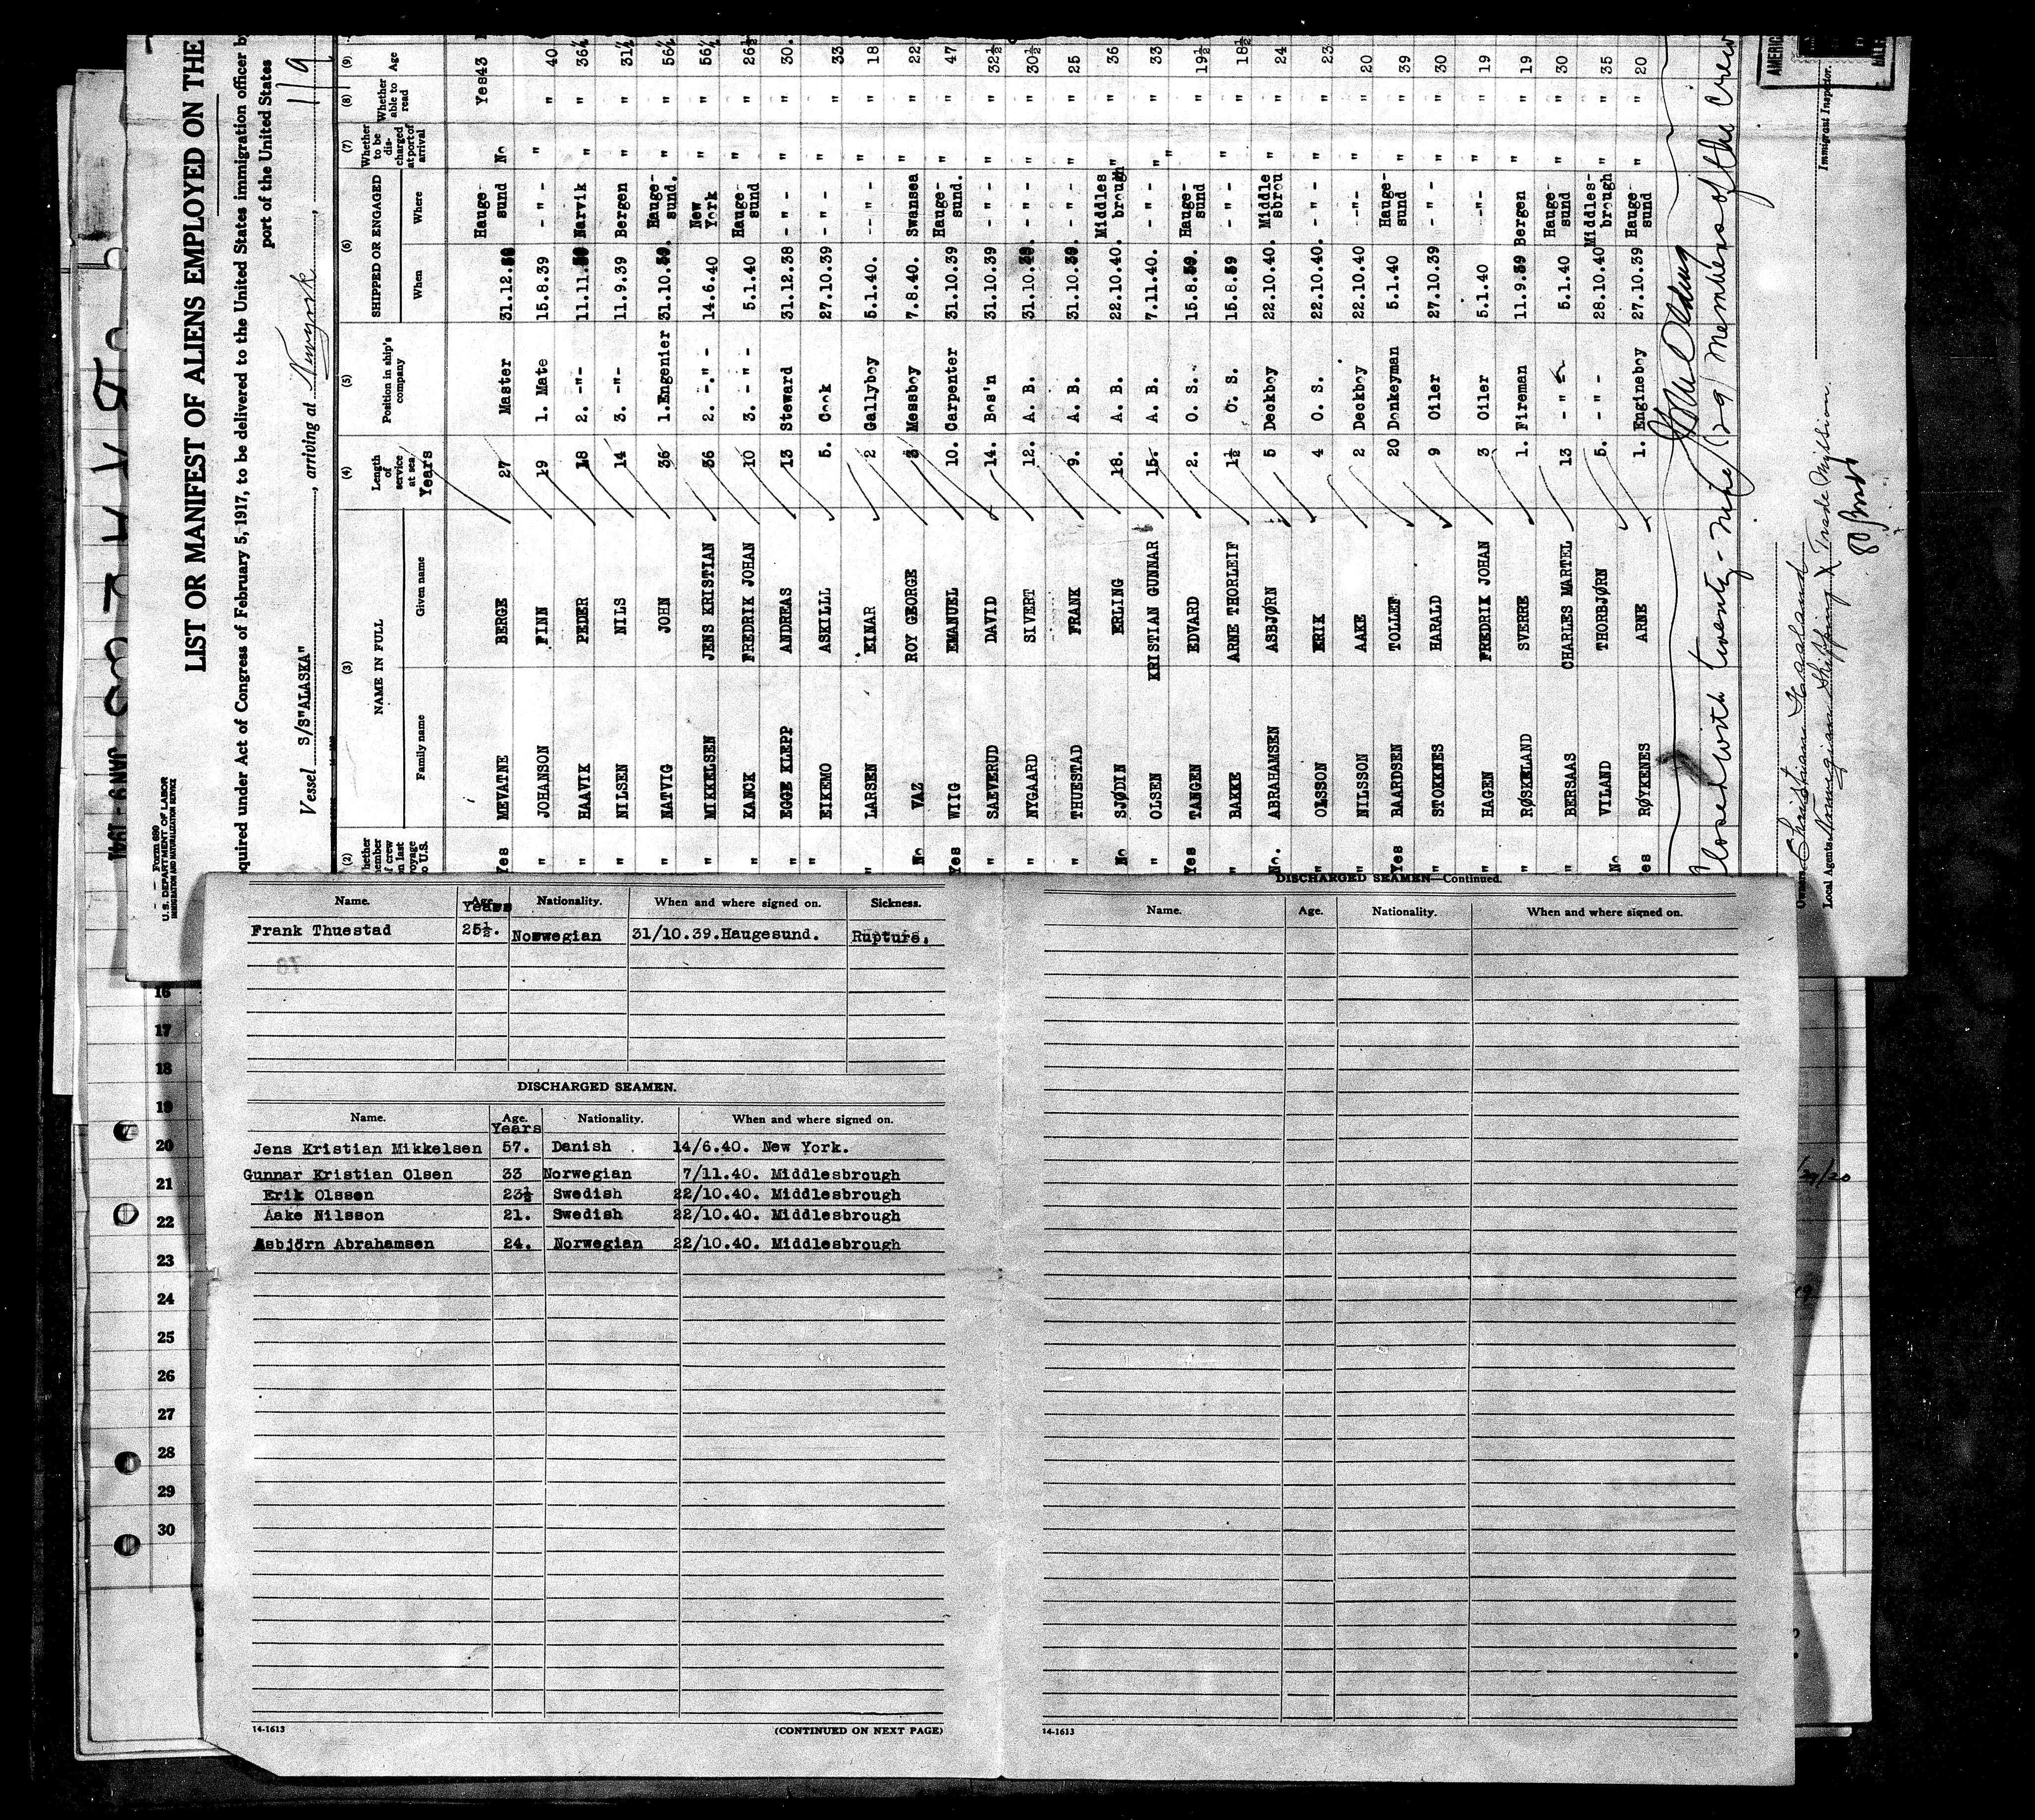 LIST OR MANIFEST OF ALIENS EMPLOYED ON THE
Form 680
U.S. DEPARTMENT OF LABOR
IMMIGRATION AND NATURALIZATION SERVICE
JAN 9 - 1941
equired under Act of Congress of February 5, 1917, to be delivered to the United States immigration officer b
port of the United States
Vessel S/S"ALASKA", arriving at Newyork, 1/9
(2) (3) (4) (5) (6) (7) (8) (9)
hether member of crew on last voyage to U.S. NAME IN FULL Family name Given name Length of service at sea Years Position in ship's company SHIPPED OR ENGAGED When Where Whether to be discharged at port of arrival Whether able to read Age
Yes MEVATNE BERGE 27 Master 31.12. Hauge-sund No Yes 43
" JOHANSON FINN 19 1. Mate 15.8.39 - " - " " 40
" HAAVIK PEDER 18 2. -"- 11.11. Narvik " " 36½
" NILSEN NILS 14 3. -"- 11.9.39 Bergen " " 31½
" NATVIG JOHN 36 1.Engenier 31.10.39. Hauge-sund. " " 56½
" MIKKELSEN JENS KRISTIAN 36 2. -"- 14.6.40 New York " " 56½
" KANCK FREDRIK JOHAN 10 3. - " - 5.1.40 Hauge-sund " " 26½
" EGGE KLEPP ANDREAS 13 Steward 31.12.38 - " - " " 30.
" EIKEMO ASKILLL 5. Cook 27.10.39 - " - " " 33
" LARSEN EINAR 2 Gallyboy 5.1.40. -- " - " " 18
No VAZ ROY GEORGE Messboy 7.8.40. Swansea " " 22
Yes WIIG EMANUEL 10. Carpenter 31.10.39 Hauge-sund. " " 47
" SAEVERUD DAVID 14. Bos'n 31.10.39 - " - " " 32½
" NYGAARD SIVERT 12. A. B. 31.10.39. - " - " " 30½
" THUESTAD FRANK 9. A. B. 31.10.39. - " - " " 25
No SJØDIN ERLING 18. A. B. 22.10.40. Middlesbrough " " 36
" OLSEN KRISTIAN GUNNAR 15 A. B. 7.11.40. - " - " " 33
Yes TANGEN EDVARD 2. O. S. 15.8.39. Hauge-sund " " 19½
" BAKKE ARNE THORLEIF 1½ O. S. 15.8.39 - " - " " 18½
No. ABRAHAMSEN ASBJØRN 5 Deckboy 22.10.40. Middle sbrou " " 24
" OLSSON ERIK 4 O. S. 22.10.40. - " - " " 23
" NILSSON AAKE 2 Deckboy 22.10.40 --"- " " 20
Yes BAARDSEN TOLLEF 20 Donkeyman 5.1.40 Hauge-sund " " 39
" STOKKNES HARALD 9 Oiler 27.10.39 - " - " " 30
" HAGEN FREDRIK JOHAN 3 Oiler 5.1.40 --"- " " 19
" RØSKELAND SVERRE 1. Fireman 11.9.39 Bergen " " 19
" BERSAAS CHARLES MARTEL 13 - " - 5.1.40 Hauge-sund " " 30
No VILAND THORBJØRN 5. - " - 28.10.40 Middles-brough " " 35
es RØYKENES ARNE 1. Engineboy 27.10.39 Hauge-sund " " 20
Closed with twenty-nine (29) Members of the Crew
Owners Christian Haaland
Local Agents Norwegian Shipping & Trade Mission
Immigrant Inspector.
AMERIC
Name. Age. Years Nationality. When and where signed on. Sickness.
Frank Thuestad 25½. Norwegian 31/10.39.Haugesund. Rupture.
DISCHARGED SEAMEN.
Name. Age. Years Nationality. When and where signed on.
Jens Kristian Mikkelsen 57. Danish 14/6.40. New York.
Gunnar Kristian Olsen 33 Norwegian 7/11.40. Middlesbrough
Erik Olssen 23½ Swedish 22/10.40. Middlesbrough
Aake Nilsson 21. Swedish 22/10.40. Middlesbrough
Asbjörn Abrahamsen 24. Norwegian 22/10.40. Middlesbrough
14-1613 (CONTINUED ON NEXT PAGE)
DISCHARGED SEAMEN—Continued.
Name. Age. Nationality. When and where signed on.
14-1613
16
17
18
19
20
21
22
23
24
25
26
27
28
29
30